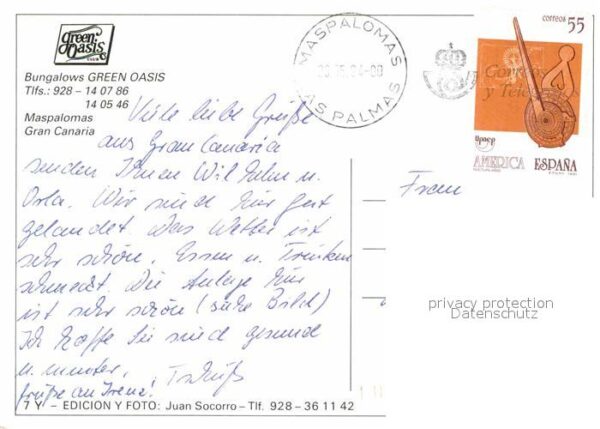 green
Oasis
CLUB
Bungalows GREEN OASIS
Tlfs.: 928 - 14 07 86
14 05 46
Maspalomas
Gran Canaria
MASPALOMAS
LAS PALMAS
correos 55
Correos
y Teleg
upaep
AMERICA ESPAÑA
Viele liebe Grüße
aus Gran Canaria
senden Ihnen Wilhelm u.
Orla. Wir sind hier gut
gelandet. Das Wetter ist
sehr schön. Essen u. Trinken
schmeckt. Die Anlage hier
ist sehr schön (siehe Bild)
Ich hoffe Sie sind gesund
u. munter. Tschüß
Grüße an Irene.
Frau
privacy protection
Datenschutz
7 Y - EDICION Y FOTO: Juan Socorro - Tlf. 928 - 36 11 42